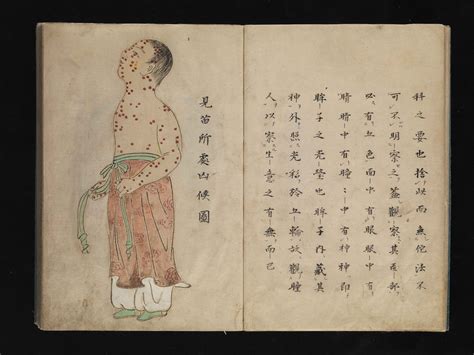 科之要也捨此而無佗法不
可不明察之蓋觀察其面部
必有五色面中有眼眼中有
睛睛中有瞳〻中有神神即
眸子之光瑩也眸子內藏其
神外照光五輪故觀瞳
人以察生意之有無而已
見苗所處凶候圖